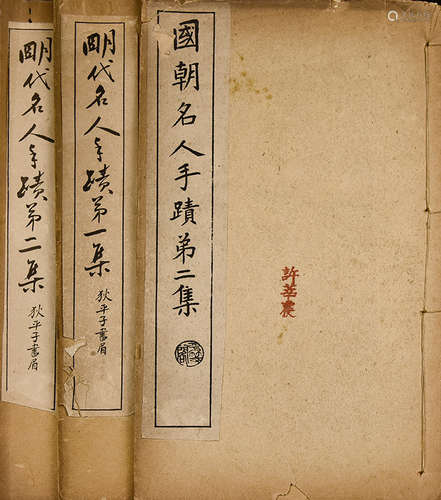 國朝名人手蹟第二集
許莘農
明代名人手蹟第一集
狄平子書眉
明代名人手蹟第二集
狄平子書眉